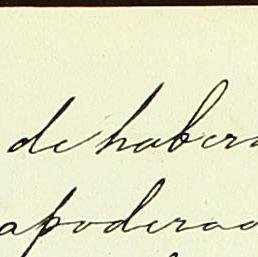 de haber
apodera